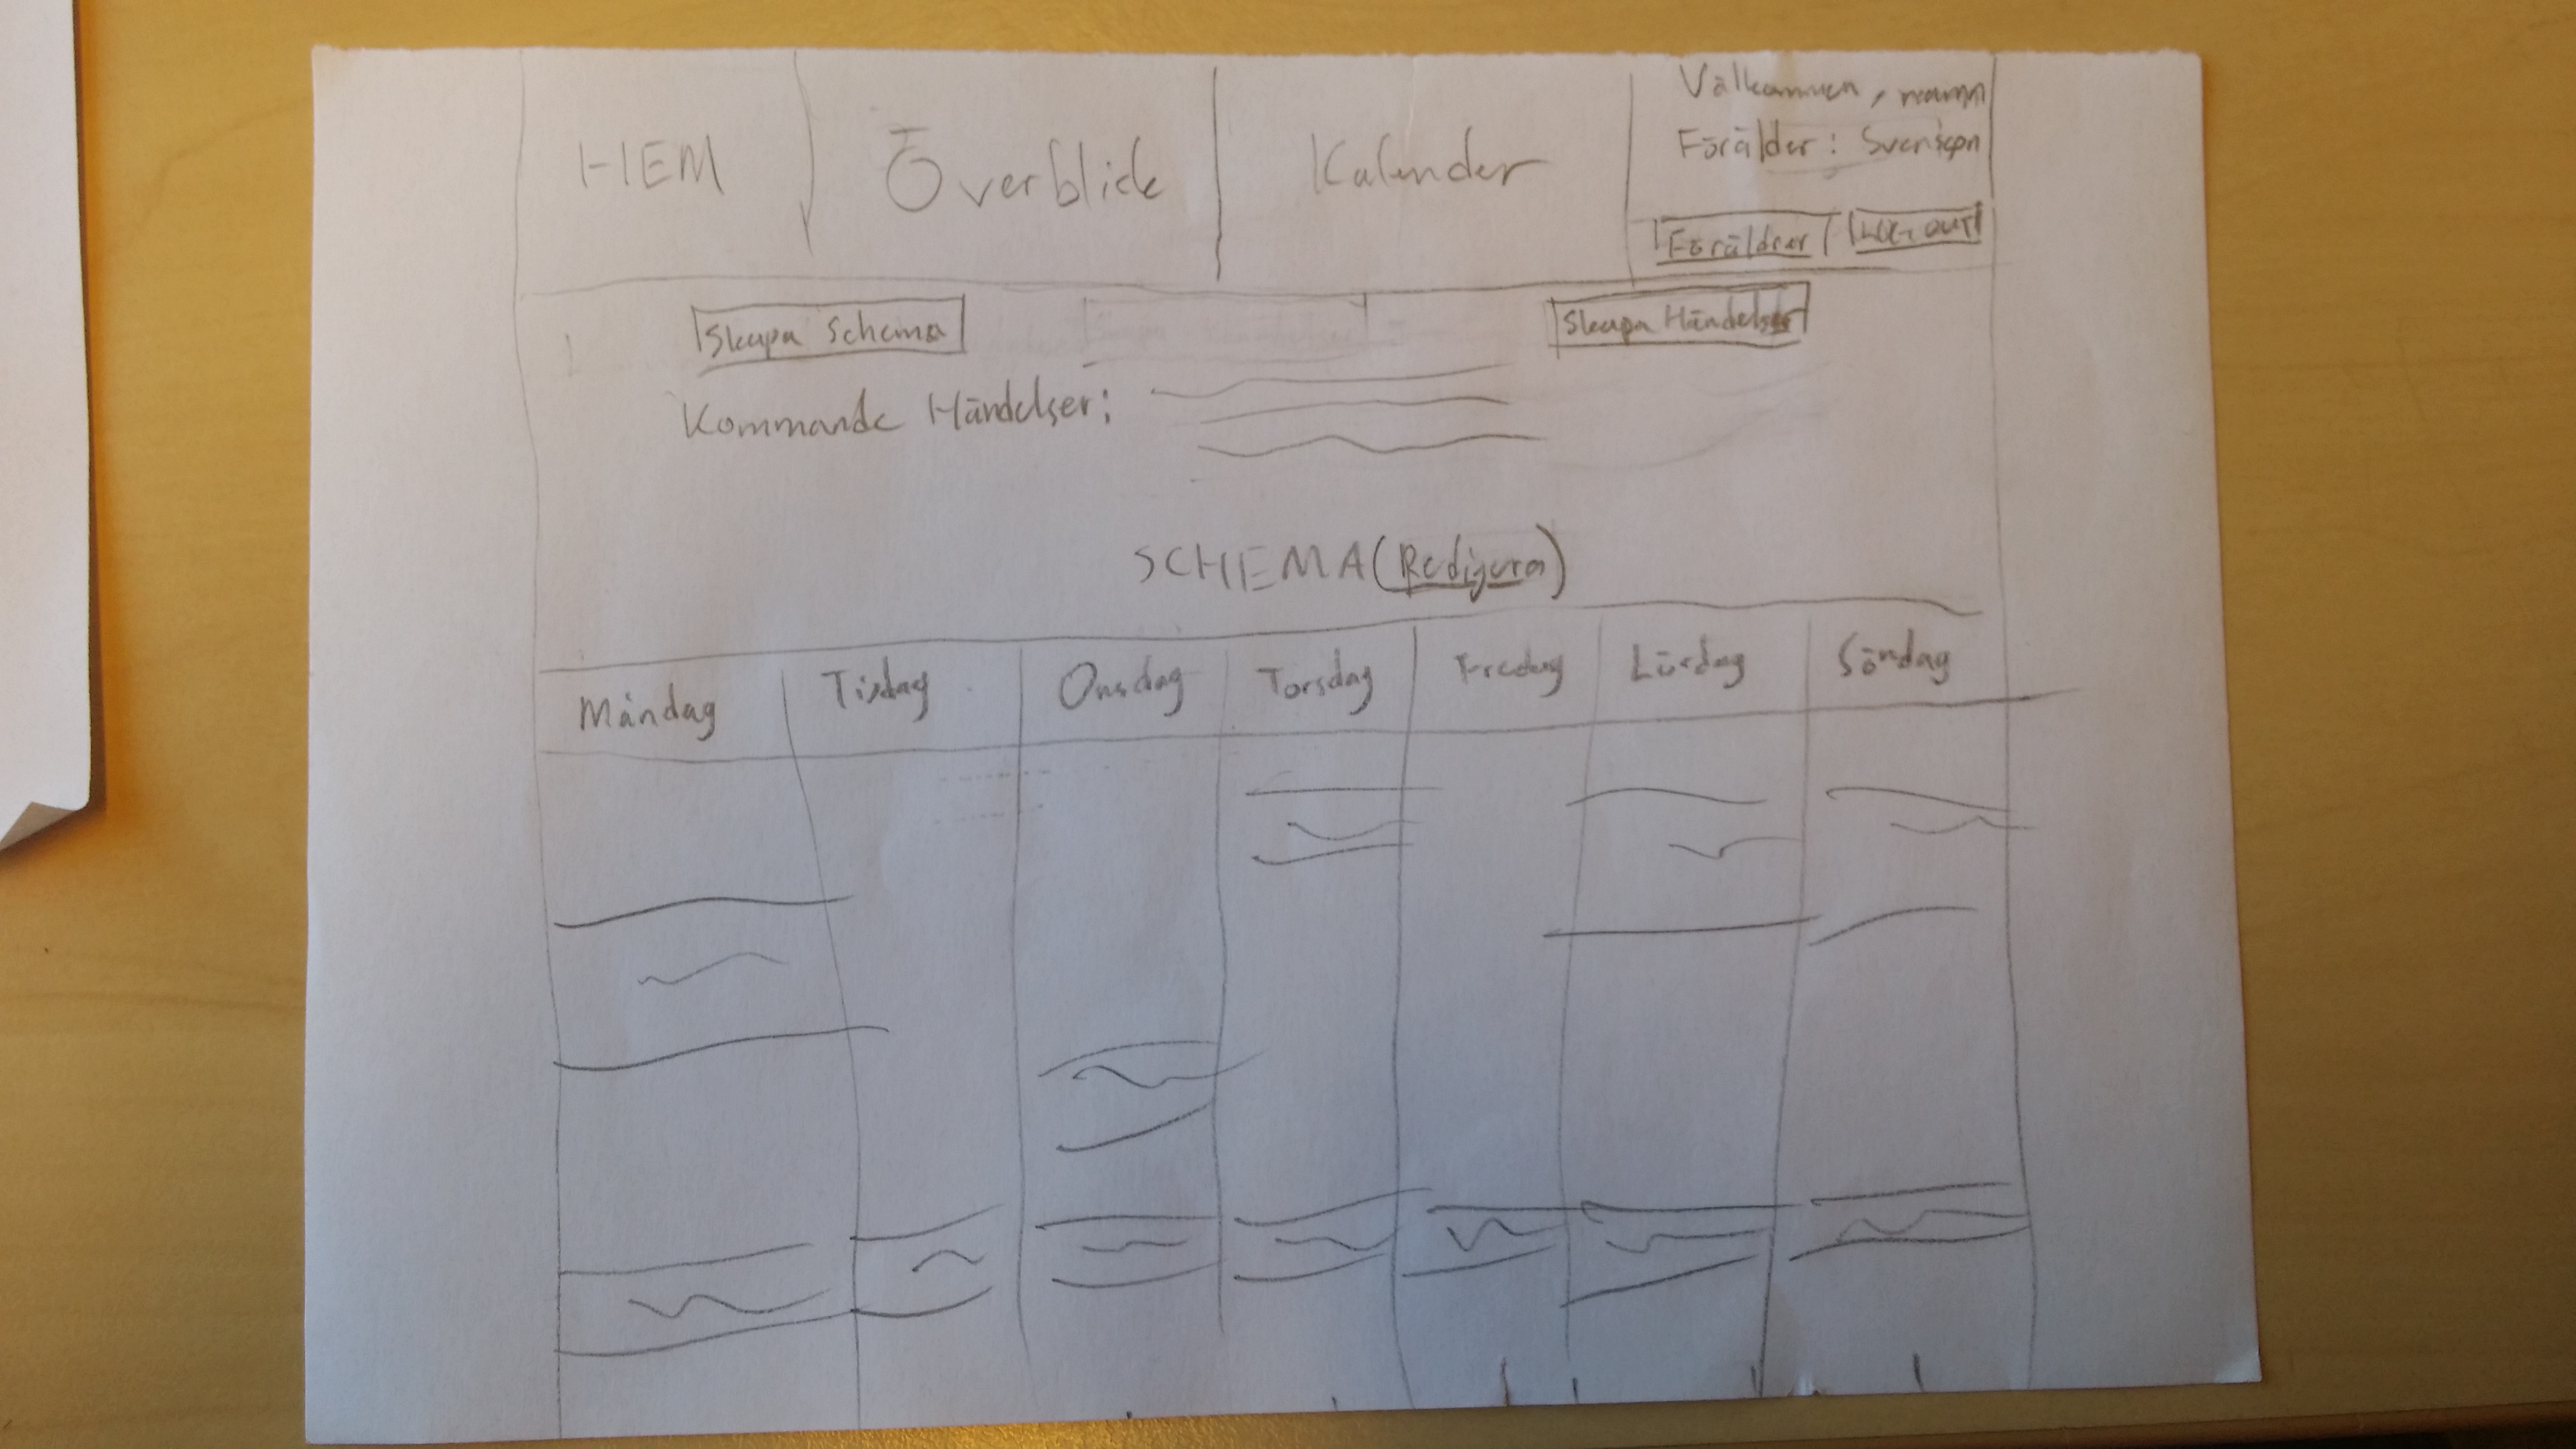 HEM
Överblick
Kalender
Välkommen, namn
Förälder: Svensson
Föräldrar
LOG OUT
Skapa Schema
Skapa Händelser
Kommande Händelser:
SCHEMA (Redigera)
Måndag
Tisdag
Onsdag
Torsdag
Fredag
Lördag
Söndag